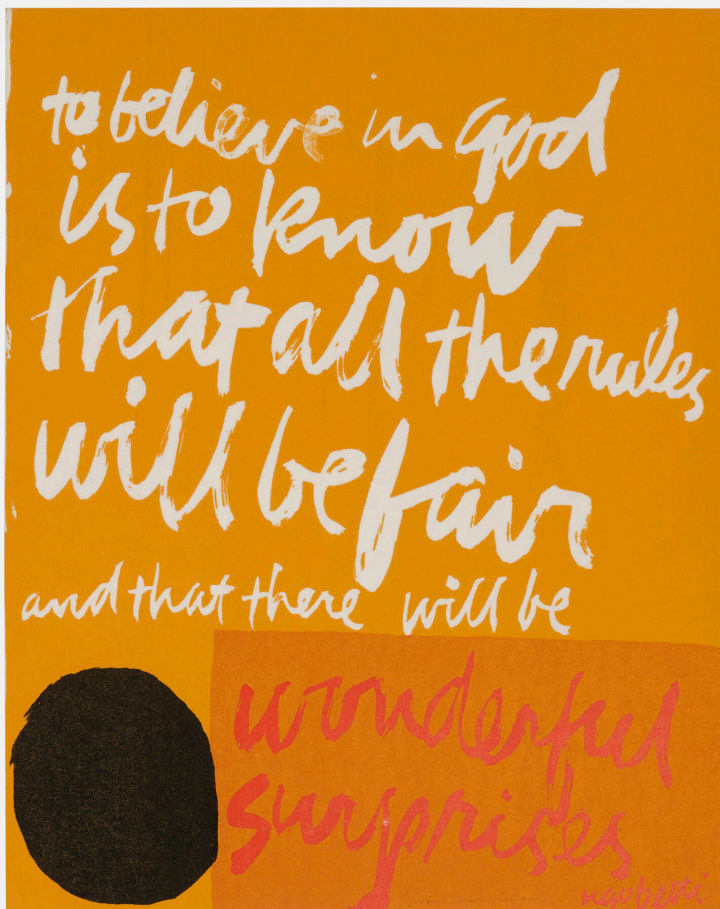 to believe in god
is to know
that all the rules
will be fair
and that there will be
wonderful
surprises
ugo betti